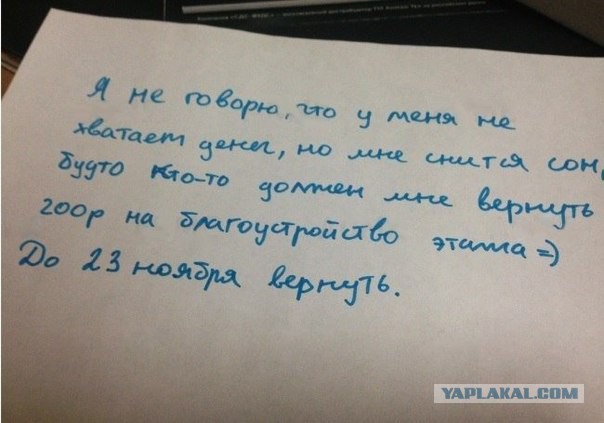 Я не говорю, что у меня не
хватает денег, но мне снится сон,
будто кто-то должен мне вернуть
200р на благоустройство этажа =)
До 23 ноября вернуть.
YAPLAKAL.COM